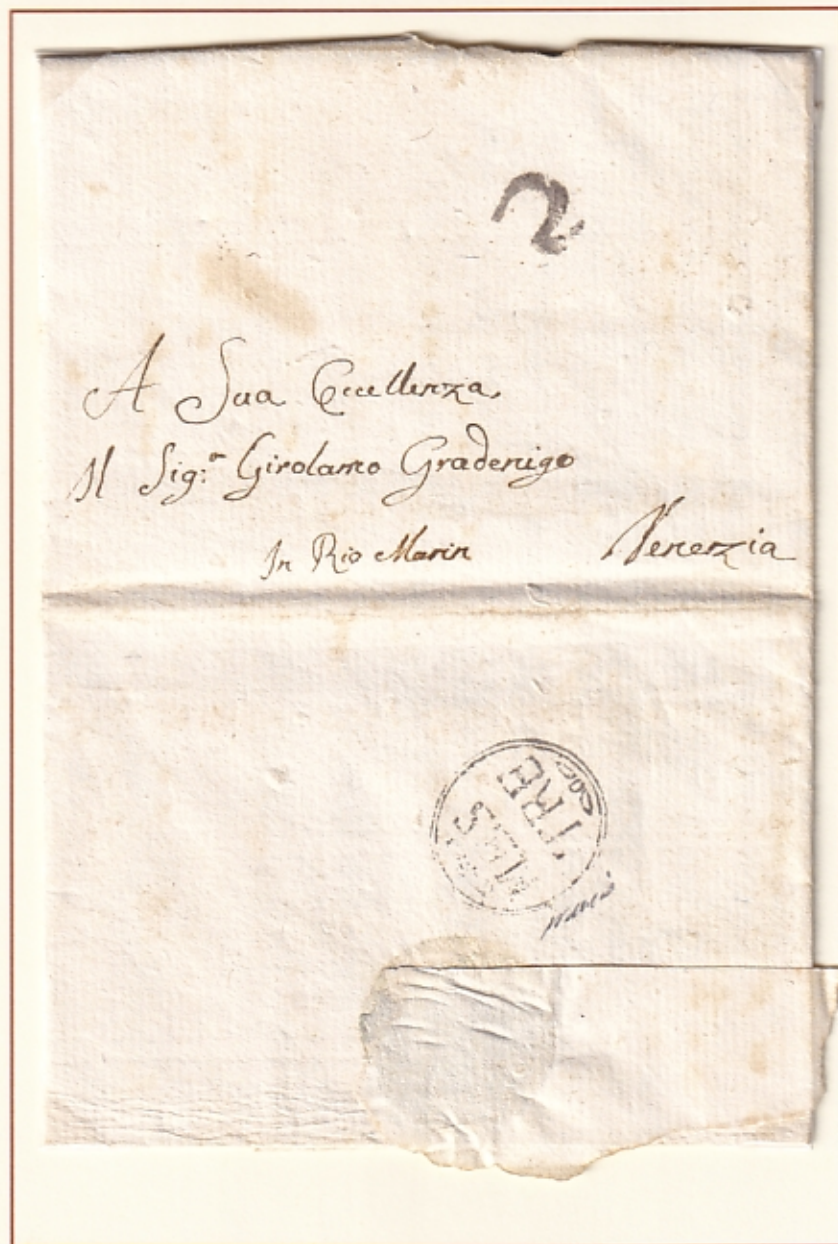 2
A Sua Eccellenza
Il Sig:r Girolamo Gradenigo
In Rio Marin Venezia
MES
TRE